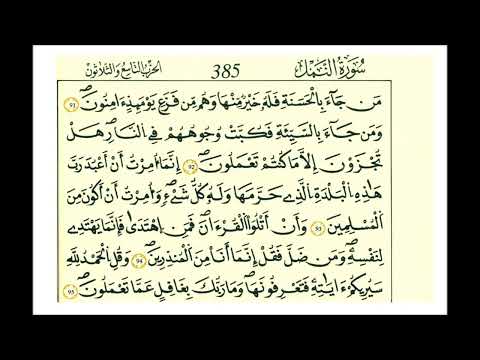 سُورَةُ النَّمْلِ 385 الحزب التاسع والثلاثون
مَن جَآءَ بِالْحَسَنَةِ فَلَهُۥ خَيْرٌ مِّنْهَا وَهُم مِّن فَزَعِ يَوْمَئِذٍ ـَامِنُونَ 91
وَمَن جَآءَ بِالسَّيِّئَةِ فَكُبَّتْ وُجُوهُهُمْ فِے النَّارِ هَلْ
تُجْزَوْنَ إِلَّا مَا كُنتُمْ تَعْمَلُونَ 92 إِنَّمَآ أُمِرْتُ أَنْ أَعْبُدَ رَبَّ
هَٰذِهِ الْبَلْدَةِ الَّذِے حَرَّمَهَا وَلَهُۥ كُلُّ شَےْءٍ وَأُمِرْتُ أَنْ أَكُونَ مِنَ
الْمُسْلِمِينَ 93 وَأَنْ أَتْلُوَا۟ الْقُرْءَانَ فَمَنِ اهْتَدَىٰ فَإِنَّمَا يَهْتَدِے
لِنَفْسِهِۦ وَمَن ضَلَّ فَقُلْ إِنَّمَآ أَنَا مِنَ الْمُنذِرِينَ 94 وَقُلِ الْحَمْدُ لِلهِ
سَيُرِيكُمُۥٓ ءَايَٰتِهِۦ فَتَعْرِفُونَهَا وَمَا رَبُّكَ بِغَٰفِلٍ عَمَّا تَعْمَلُونَ 95